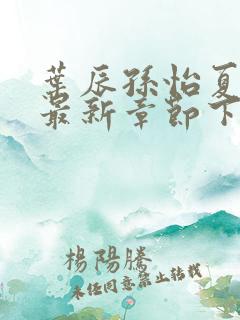 葉辰孫怡夏
最新章節下
楊陽騰
未任同意禁止转载